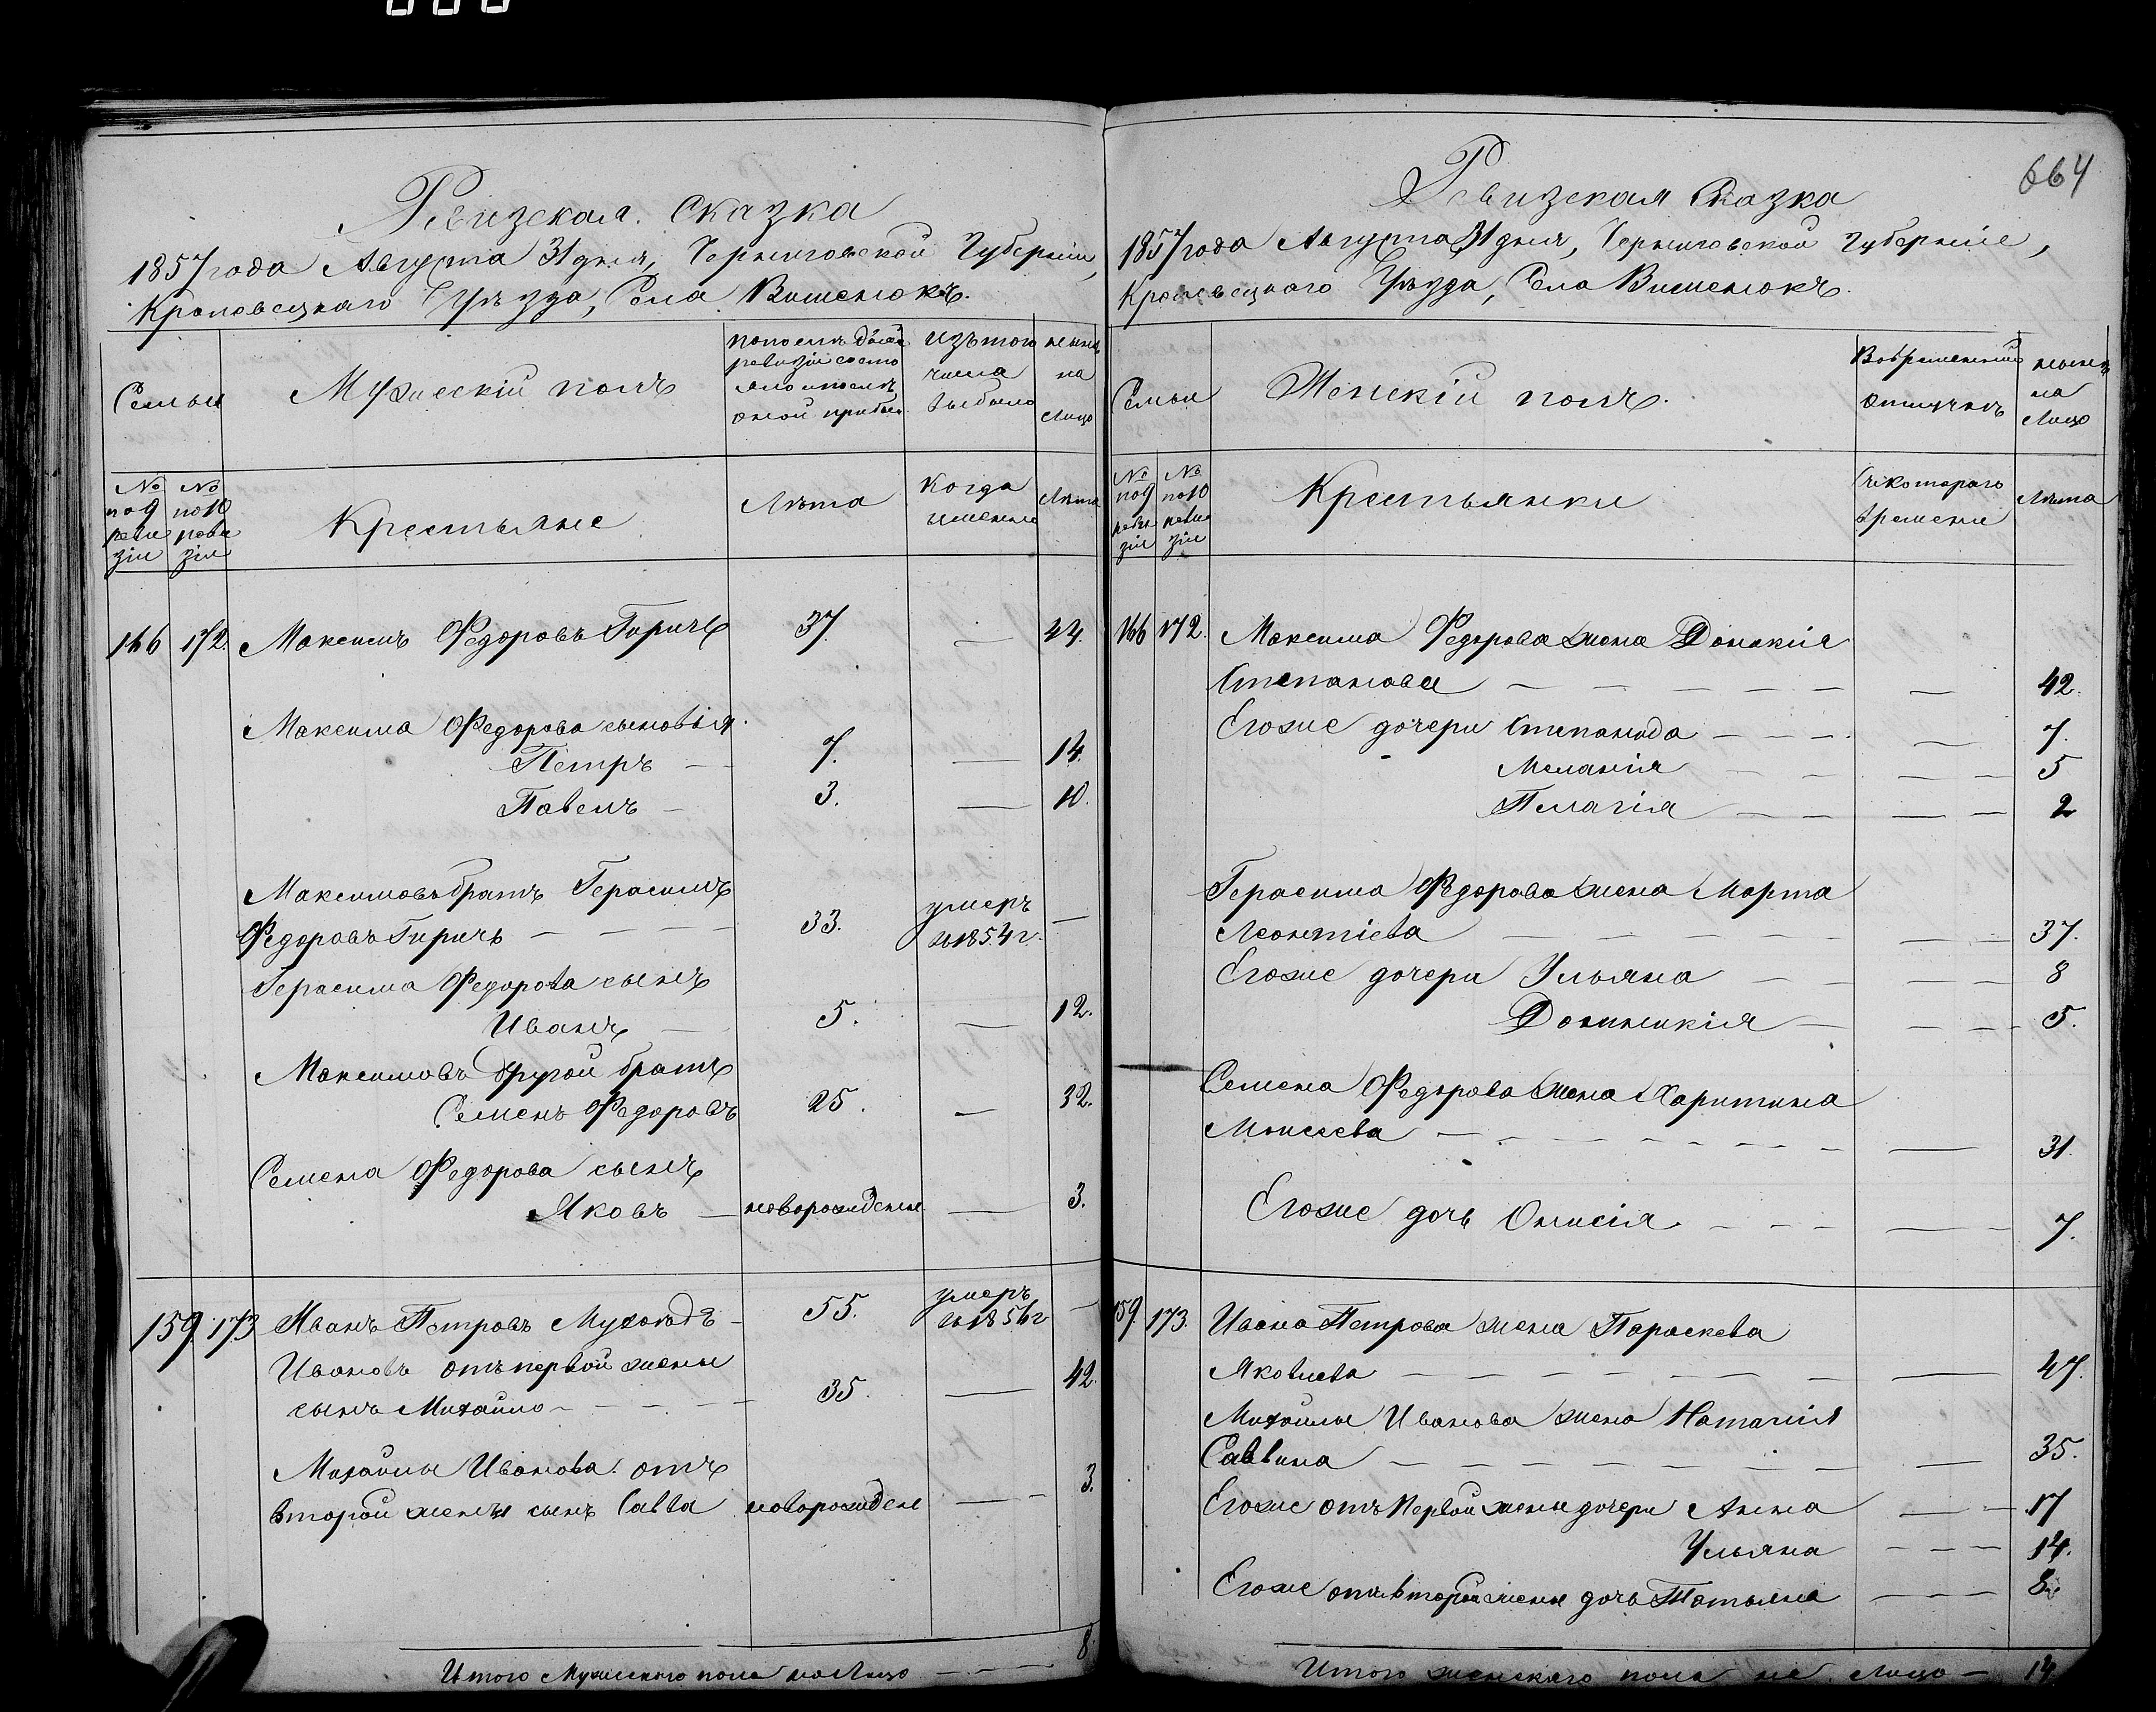 Ревизская Сказка
1857 года Августа 31 дня, Черниговской Губерніи,
Кролевецкаго Уѣзда, Села Вишенокъ.
Семьи
Мужескій полъ
по послѣдней
ревизіи состо
яло и послѣ
оной прибыло
изъ того
числа
выбыло
нынѣ
на
лицо
№
по 9
реви
зіи
№
по 10
реви
зіи
Крестьяне
Лѣта
Когда
именно
Лѣта
166 172. Максимъ Федоровъ Гиричъ 37 — 44.
Максима Федорова сыновья
Петръ — 7. — 14.
Павелъ — 3. — 10.
Максимовъ братъ Герасимъ
Федоровъ Гиричъ — — — — 33. умеръ
въ 1854 г. —
Герасима Федорова сынъ
Иванъ — 5. — 12.
Максимовъ другой братъ
Семенъ Федоровъ 25. — 32.
Семена Федорова сынъ
Яковъ — новорожденъ — 3.
159 173 Иванъ Петровъ — 55. умеръ
въ 1856 г —
Ивановъ отъ первой жены
сынъ Михайло — — — — 35. — 42.
Михайлы Иванова отъ
второй жены сынъ Савва новорожден — — 3.
Итого Мужескаго пола на лицо — — — 8.
664
Ревизская Сказка
1857 года Августа 31 дня, Черниговской Губерніи,
Кролевецкаго Уѣзда, Села Вишенокъ.
Семьи
Женскій полъ.
Во временной
отлучкѣ
нынѣ
на
лицо
№
по 9
реви
зіи
№
по 10
реви
зіи
Крестьянки
Съ котораго
времени
Лѣта
166 172. Максима Федорова жена Домникія
Степанова — — — — — — 42.
Его же дочери Степанида — — — — 7.
Меланія — — — — 5
Пелагія — — — — 2
Герасима Федорова жена Марта
Леонтіева — — — — — — — 37.
Его же дочери Ульяна — — — — 8
Домникія — — — 5.
Семена Федорова жена Харитина
Моисеева — — — — — — — — 31.
Его же дочь Онисія — — — — 7.
159 173. Ивана Петрова жена Параскева
Яковлева — — — — — — — 47.
Михайлы Иванова жена Наталія
Саввина — — — — — — — — 35.
Его же отъ первой жены дочери Анна — — 17
Ульяна — — — 14.
Его же отъ второй жены дочь Татьяна — — — 8.
Итого женскаго пола на лицо — 14.